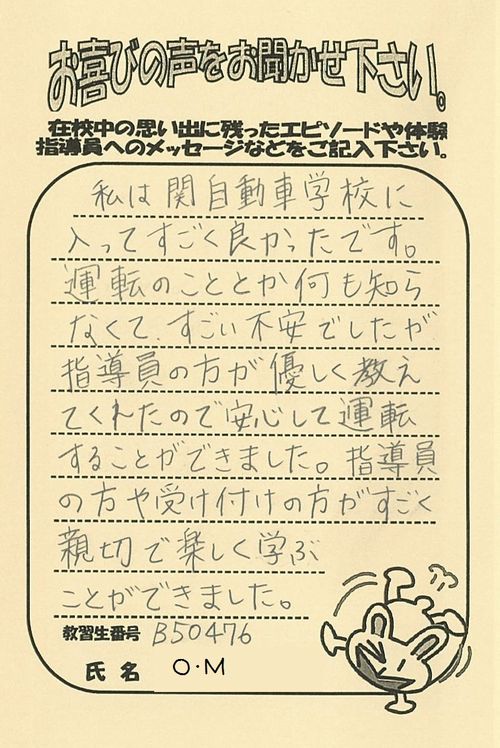 お喜びの声をお聞かせ下さい。
在校中の思い出に残ったエピソードや体験
指導員へのメッセージなどをご記入下さい。
私は関自動車学校に
入ってすごく良かったです。
運転のこととか何も知ら
なくて、すごい不安でしたが
指導員の方が優しく教え
てくれたので安心して運転
することができました。指導員
の方や受け付けの方がすごく
親切で楽しく学ぶ
ことができました。
教習生番号 B50476
氏名 O・M